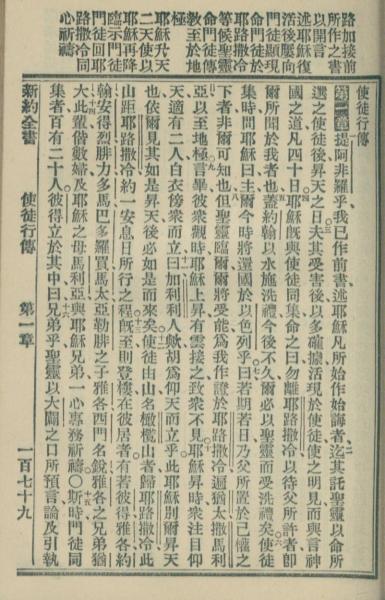 路加接前
所作之書
以開言
述耶穌復
活後屢向
門徒顯現
命門徒於
耶路撒冷
等候聖靈
命門徒傳
教至於地
極
耶穌升天
二天使以
耶穌再降
臨示門徒
門徒回耶
路撒冷同
心祈禱
使徒行傳
第一章提阿非羅乎我已作前書述耶穌凡所始作始誨者迄其託聖靈以命所
選之使徒後昇天之日夫其受害後以多確據活現於使徒使之明見而與言神
國之道凡四十日耶穌既與使徒同集命之曰勿離耶路撒冷以待父所許者卽
爾所聞於我者也蓋約翰以水施洗禮今後不久爾必以聖靈而受洗禮矣使徒
集時問耶穌曰主爾今時將還國於以色列乎曰若期若日乃父所置於己權之
下者非爾可知也但聖靈臨爾爾將受能爲我作證於耶路撒冷遍猶太撒馬利
亞以至地極言畢彼衆觀時耶穌上昇有雲接之致衆不見耶穌昇時衆注目仰
天適有二人白衣傍衆而立曰加利利人歟胡爲仰天而立乎此耶穌別爾昇天
也依爾見其如是昇天後必如是而來矣使徒由山名橄欖山者歸耶路撒冷此
山距耶路撒冷約一安息日所行之程旣至則登樓在彼居者有若彼得雅各約
翰安得烈腓力多馬巴多羅買馬太亞勒腓之子雅各西門名銳雅各之兄弟猶
大此輩偕數婦及耶穌之母馬利亞與耶穌兄弟一心專務祈禱○斯時門徒同
集者百有二十人彼得立於其中曰兄弟乎聖靈以大闢之口所預言論及引執
新約全書 使徒行傳 第一章 一百七十九